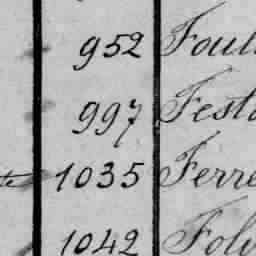 952 Foul
997 Festa
te 1035 Ferre
1042 Folv